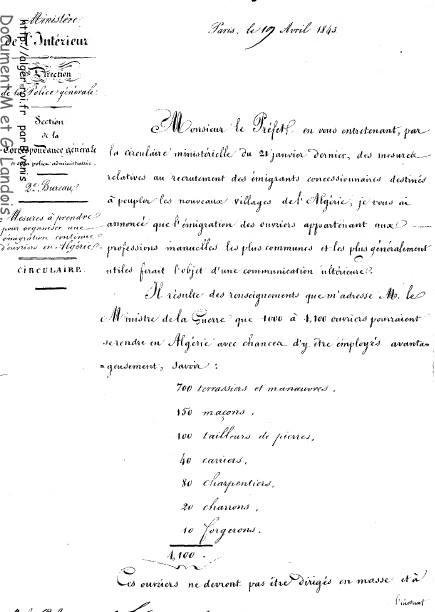 Ministère
de l'Intérieur
Direction
de la Police générale.
Section
de la
Correspondance générale
et police administrative.
2e. Bureau.
Mesures à prendre
pour organiser une
émigration continue
d'ouvriers en Algérie.
CIRCULAIRE.
http://alger-roi.fr par B.Venis
Document M et G Landois
Paris, le 19 Avril 1843
Monsieur le Préfet, en vous entretenant, par
la circulaire ministérielle du 21 janvier dernier, des mesures
relatives au recrutement des émigrants concessionnaires destinés
à peupler les nouveaux villages de l'Algérie, je vous ai
annoncé que l'émigration des ouvriers appartenant aux
professions manuelles les plus communes et les plus généralement
utiles ferait l'objet d'une communication ultérieure.
Il résulte des renseignements que m'adresse M. le
Ministre de la Guerre que 1000 à 1,100 ouvriers pourraient
se rendre en Algérie avec chances d'y être employés avanta-
=geusement, savoir :
700 terrassiers et manœuvres.
150 maçons.
100 tailleurs de pierres.
40 carriers.
80 charpentiers.
20 charrons.
10 forgerons.
1,100.
Ces ouvriers ne devront pas être dirigés en masse et à
l'instant